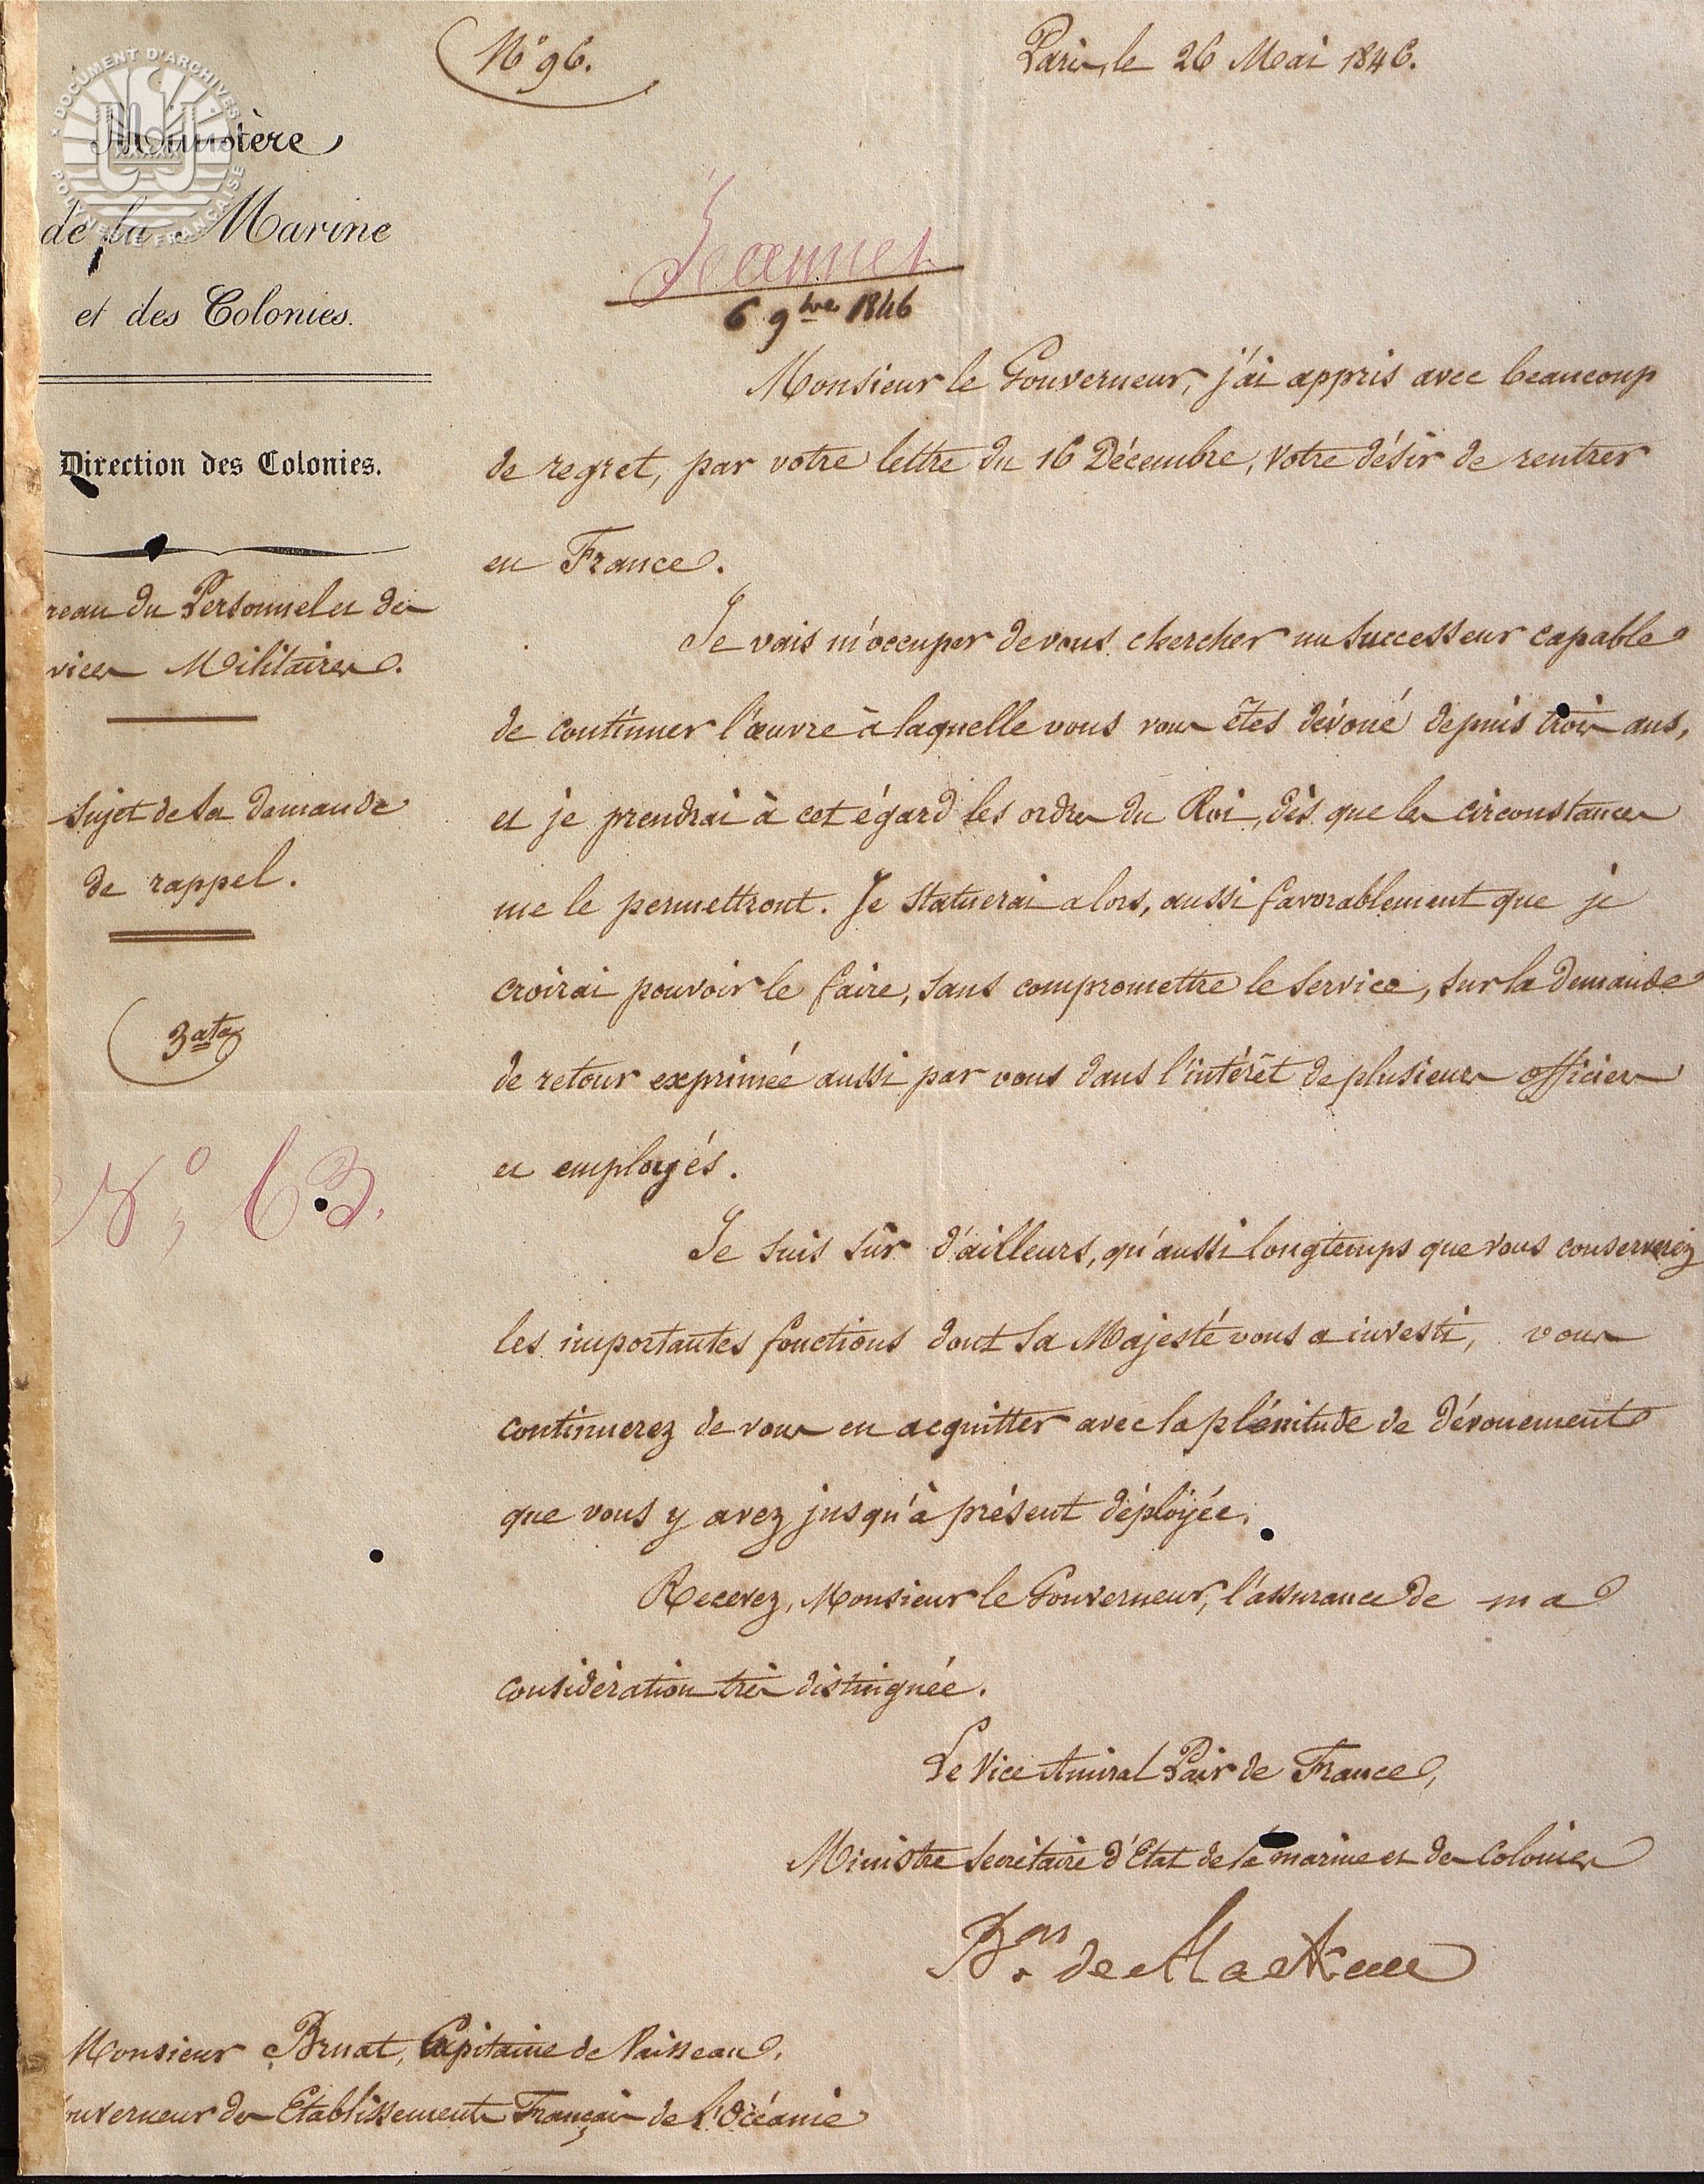 N° 96.
Paris, le 26 Mai 1846.
DOCUMENT D'ARCHIVES
POLYNESIE FRANÇAISE
Ministère
de la Marine
et des Colonies.
6 9bre 1846
Direction des Colonies.
reau du Personnel et des
vices Militaires.
Sujet de sa demande
de rappel.
3ata
N° 63.
Monsieur le Gouverneur, j'ai appris avec beaucoup
de regret, par votre lettre du 16 Décembre, votre désir de rentrer
en France.
Je vais m'occuper de vous chercher un successeur capable
de continuer l'œuvre à laquelle vous vous êtes dévoué depuis trois ans,
et je prendrai à cet égard les ordres du Roi, dès que les circonstances
me le permettront. Je statuerai alors, aussi favorablement que je
croirai pouvoir le faire, sans compromettre le service, sur la demande
de retour exprimée aussi par vous dans l'intérêt de plusieurs officiers
et employés.
Je suis sûr d'ailleurs, qu'aussi longtemps que vous conserverez
les importantes fonctions dont Sa Majesté vous a investi, vous
continuerez de vous en acquitter avec la plénitude de dévouement
que vous y avez jusqu'à présent déployée.
Recevez, Monsieur le Gouverneur, l'assurance de ma
considération très distinguée.
Le Vice Amiral Pair de France,
Ministre Secrétaire d'Etat de la marine et des Colonies
Bon de Mackau
Monsieur Bruat, Capitaine de Vaisseau,
ouverneur des Etablissements Français de l'Océanie